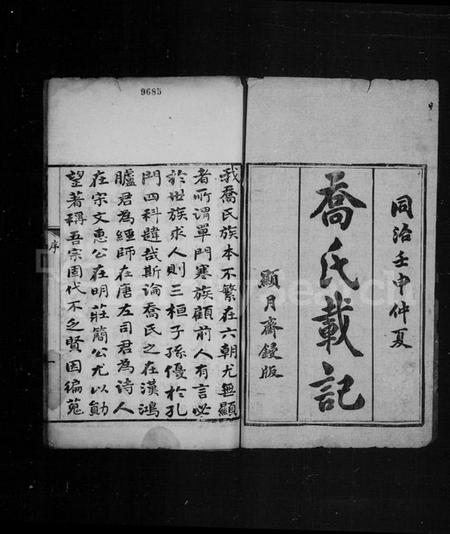 9685
同治壬申仲夏
喬氏載記
顯月齋鋟版
我喬氏族本不繁在六朝尤無顯
者所謂單門寒族顧前人有言必
於世族求人則三桓子孫優於孔
門四科韙哉斯論喬氏之在漢鴻
臚君為經師在唐左司君為詩人
在宋文惠公在明莊簡公尤以勛
望著稱吾宗固代不乏賢因徧蒐
序